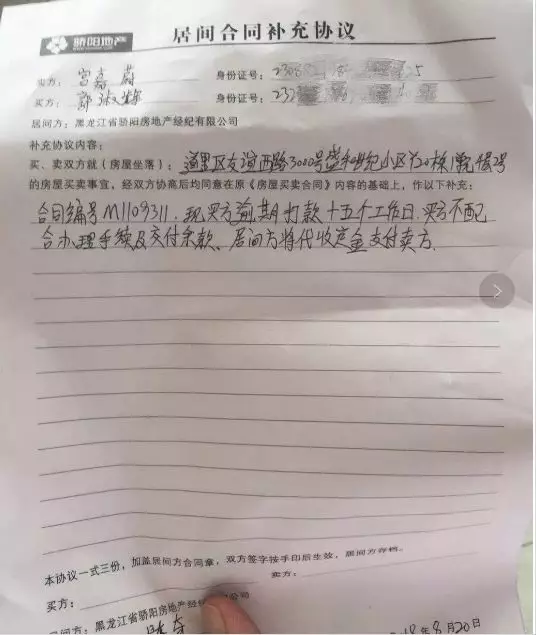 骄阳地产
居间合同补充协议
卖方：宫嘉蔚 身份证号：
买方：郭淑 身份证号：
居间方：黑龙江省骄阳房地产经纪有限公司
补充协议内容：
买、卖双方就（房屋坐落）：道里区友谊西路3000号盛和世纪小区 20栋1
的房屋买卖事宜，经双方协商后均同意在原《房屋买卖合同》内容的基础上，作以下补充：
合同编号M1109311.现买方逾期打款十五个工作日.买方不配
合办理手续及交付余款、居间方将代收定金支付卖方.
本协议一式三份，加盖居间方合同章，双方签字按手印后生效，居间方存档。
买方： 卖方：
居间方：黑龙江省骄阳房地产经纪有限公司
18年8月20日